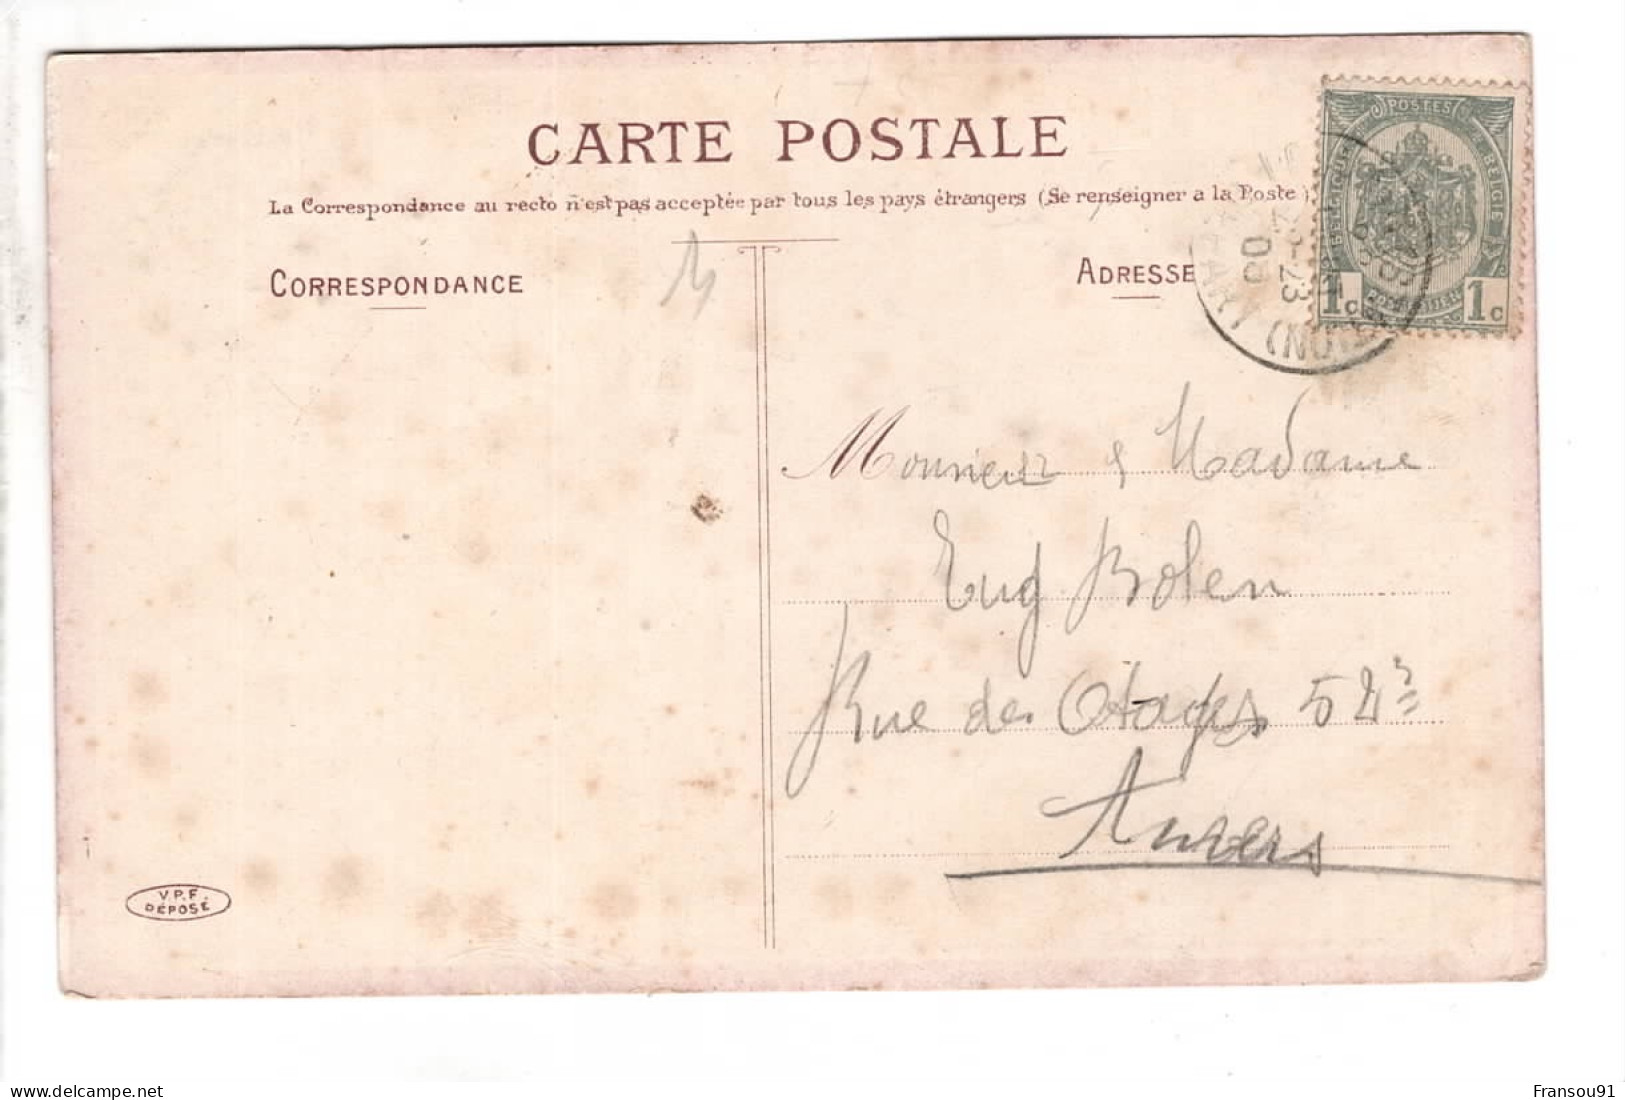 CARTE POSTALE
La Correspondance au recto n'est pas acceptée par tous les pays étrangers (Se renseigner a la Poste)
CORRESPONDANCE
ADRESSE
POSTES
BELGIQUE BELGIE
1c 1c
22-23
08
(NORD)
Monsieur & Madame
Eug Bolen
Rue des Otages 52
Anvers
V.P.F.
DÉPOSÉ
delcampe.net
Fransou91